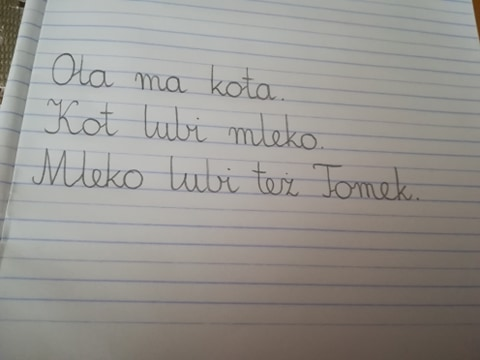 Ola ma kota.
Kot lubi mleko.
Mleko lubi też Tomek.